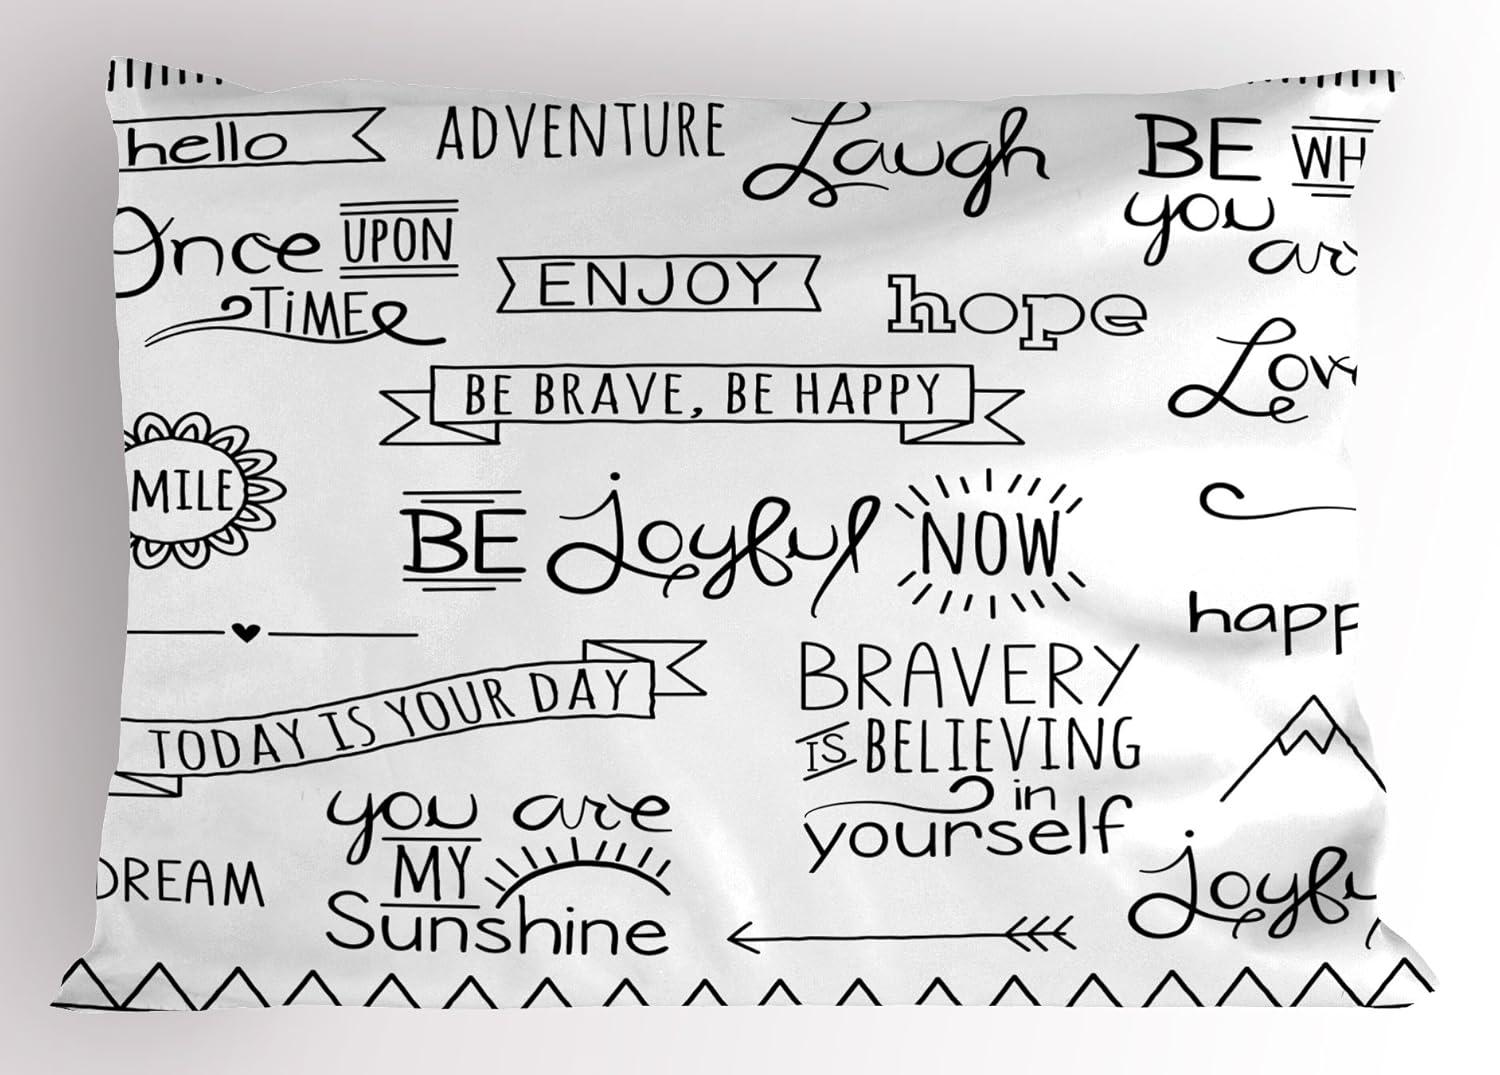 hello
ADVENTURE
Laugh
BE WH
you
ar
Once UPON
TiME
ENJOY
hope
Love
BE BRAVE, BE HAPPY
MILE
BE joyful NOW
happ
TODAY IS YOUR DAY
BRAVERY
IS BELIEVING
in
yourself
you are
MY
Sunshine
DREAM
joyfu